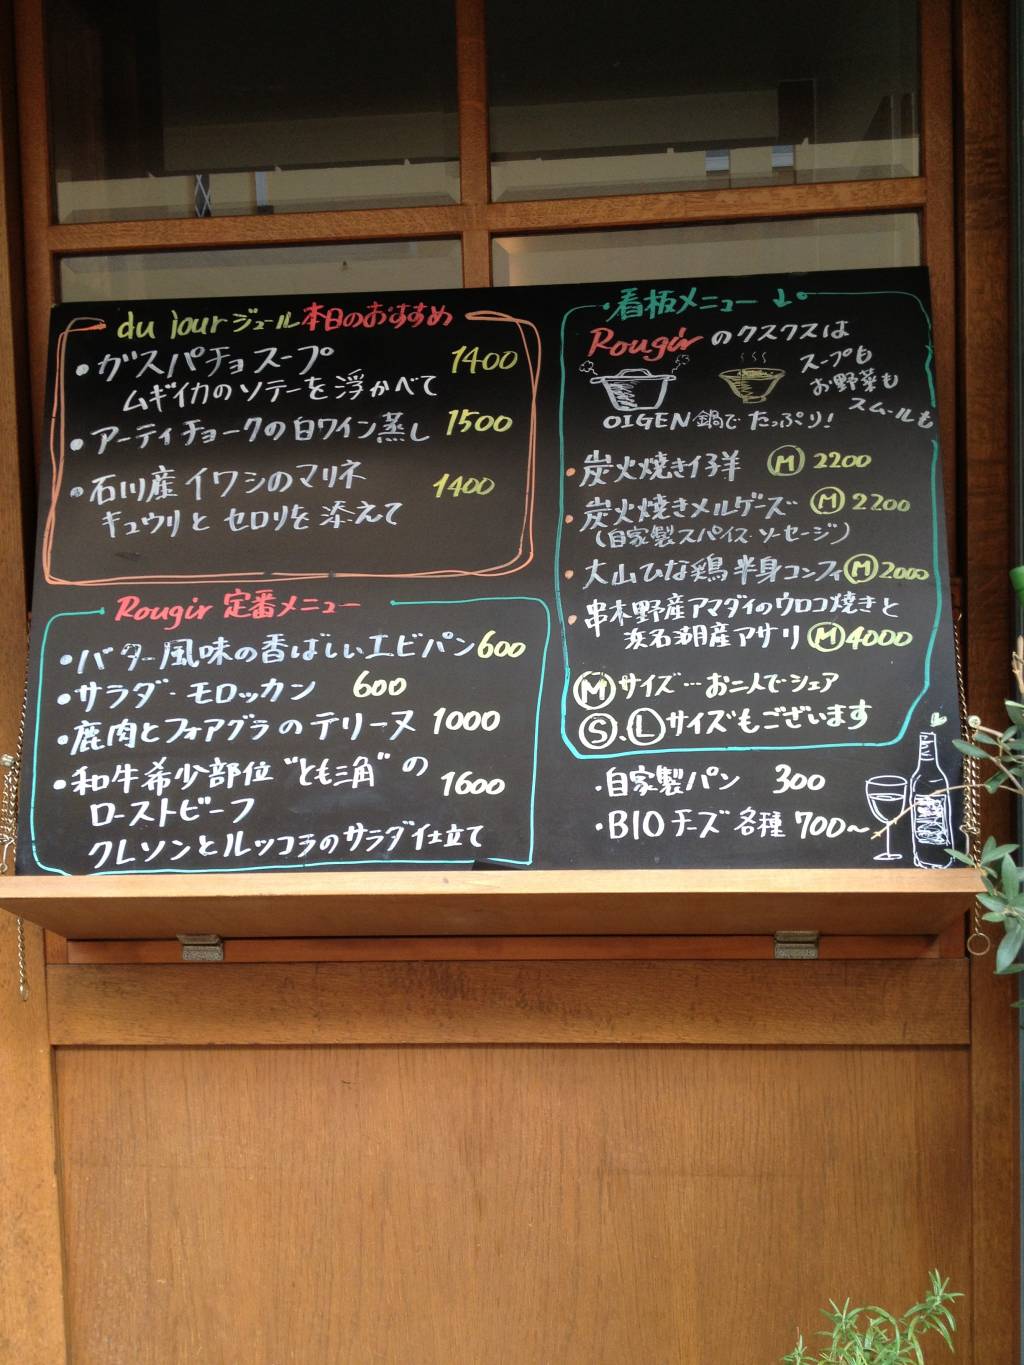 du jour ジュール 本日のおすすめ
・ガスパチョスープ 1400
ムギイカのソテーを浮かべて
・アーティチョークの白ワイン蒸し 1500
・石川産イワシのマリネ 1400
キュウリとセロリを添えて
Rougir 定番メニュー
・バター風味の香ばしいエビパン 600
・サラダ・モロッカン 600
・鹿肉とフォアグラのテリーヌ 1000
・和牛希少部位"とも三角"の 1600
ローストビーフ
クレソンとルッコラのサラダ仕立て
・看板メニュー↓。
Rougirのクスクスは
スープも
お野菜も
スムールも
OIGEN鍋でたっぷり!
・炭火焼き仔羊 Ⓜ 2200
・炭火焼きメルゲーズ Ⓜ 2200
(自家製スパイス・ソーセージ)
・大山ひな鶏半身コンフィ Ⓜ 2000
・串木野産アマダイのウロコ焼きと
浜名湖産アサリ Ⓜ 4000
Ⓜサイズ…お二人でシェア
Ⓢ、Ⓛサイズもございます
・自家製パン 300
・BIOチーズ各種 700~